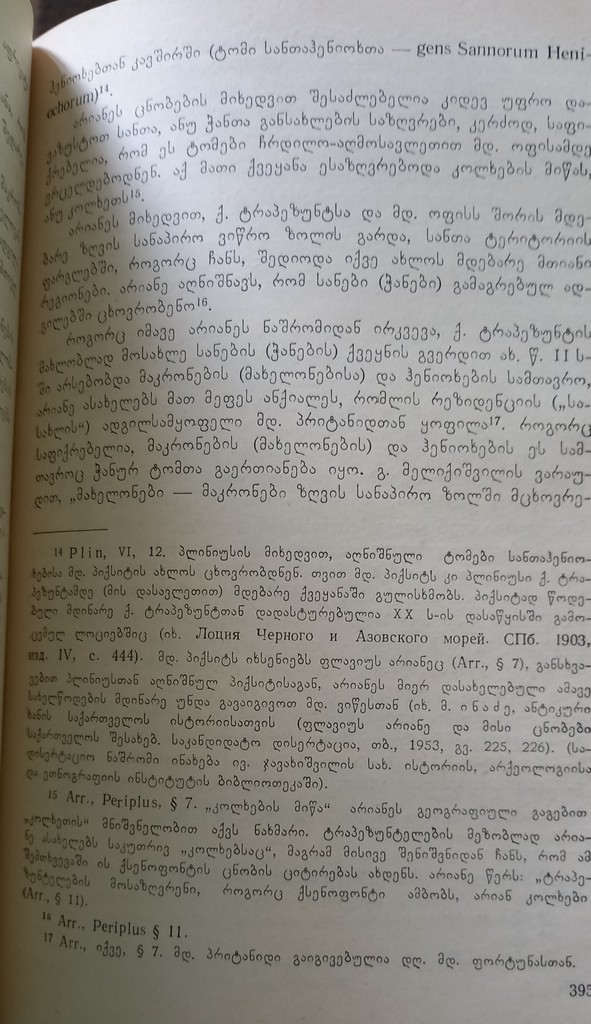 ჰენიოხებთან კავშირში (ტომი სანთაჰენიოხთა — gens Sannorum Heni-
ochorum)¹⁴.
არიანეს ცნობების მიხედვით შესაძლებელია კიდევ უფრო და-
ვაზუსტოთ სანთა, ანუ ჭანთა განსახლების საზღვრები, კერძოდ, საფი-
ქრებელია, რომ ეს ტომები ჩრდილო-აღმოსავლეთით მდ. ოფისამდე
ვრცელდებოდნენ. აქ მათი ქვეყანა ესაზღვრებოდა კოლხების მიწას,
ანუ კოლხეთს¹⁵.
არიანეს მიხედვით, ქ. ტრაპეზუნტსა და მდ. ოფისს შორის მდე-
ბარე ზღვის სანაპირო ვიწრო ზოლის გარდა, სანთა ტერიტორიის
ფარგლებში, როგორც ჩანს, შედიოდა იქვე ახლოს მდებარე მთიანი
რეგიონები. არიანე აღნიშნავს, რომ სანები (ჭანები) გამაგრებულ ად-
გილებში ცხოვრობენო¹⁶.
როგორც იმავე არიანეს ნაშრომიდან ირკვევა, ქ. ტრაპეზუნტის
მახლობლად მოსახლე სანების (ჭანების) ქვეყნის გვერდით ახ. წ. II ს-
ში არსებობდა მაკრონების (მახელონებისა) და ჰენიოხების სამთავრო,
არიანე ასახელებს მათ მეფეს ანქიალეს, რომლის რეზიდენციის („სა-
სახლის“) ადგილსამყოფელი მდ. პრიტანიდთან ყოფილა¹⁷. როგორც
საფიქრებელია, მაკრონების (მახელონების) და ჰენიოხების ეს სამ-
თავროც ჭანურ ტომთა გაერთიანება იყო. გ. მელიქიშვილის ვარაუ-
დით, „მახელონები — მაკრონები ზღვის სანაპირო ზოლში მცხოვრე-
¹⁴ Plin, VI, 12. პლინიუსის მიხედვით, აღნიშნული ტომები სანთაჰენიო-
ხებისა მდ. პიქსიტის ახლოს ცხოვრობდნენ. თვით მდ. პიქსიტს კი პლინიუსი ქ. ტრა-
პეზუნტამდე (მის დასავლეთით) მდებარე ქვეყანაში გულისხმობს. პიქსიტად წოდე-
ბული მდინარე ქ. ტრაპეზუნტთან დადასტურებულია XX ს-ის დასაწყისში გამო-
ცემულ ლოციებშიც (იხ. Лоция Черного и Азовского морей. СПб. 1903,
изд. IV, с. 444). მდ. პიქსიტს იხსენიებს ფლავიუს არიანეც (Arr., § 7), განსხვა-
ვებით პლინიუსთან აღნიშნულ პიქსიტისაგან, არიანეს მიერ დასახელებული ამავე
სახელწოდების მდინარე უნდა გავაიგივოთ მდ. ვიწესთან (იხ. მ. ინაძე, ანტიკური
ხანის საქართველოს ისტორიისათვის (ფლავიუს არიანე და მისი ცნობები
საქართველოს შესახებ. საკანდიდატო დისერტაცია, თბ., 1953, გვ. 225, 226). (სა-
დისერტაციო ნაშრომი ინახება ივ. ჯავახიშვილის სახ. ისტორიის, არქეოლოგიისა
და ეთნოგრაფიის ინსტიტუტის ბიბლიოთეკაში).
¹⁵ Arr., Periplus, § 7. „კოლხების მიწა“ არიანეს გეოგრაფიული გაგებით
„კოლხეთის“ მნიშვნელობით აქვს ნახმარი. ტრაპეზუნტელების მეზობლად არია-
ნე ასახელებს საკუთრივ „კოლხებსაც“, მაგრამ მისივე შენიშვნიდან ჩანს, რომ ამ
შემთხვევაში ის ქსენოფონტის ცნობის ციტირებას ახდენს. არიანე წერს: „ტრაპე-
ზუნტელების მოსაზღვრენი, როგორც ქსენოფონტი ამბობს, არიან კოლხები
(Arr., § 11).
¹⁶ Arr., Periplus § 11.
¹⁷ Arr., იქვე, § 7. მდ. პრიტანიდი გაიგივებულია დღ. მდ. ფორტუნასთან.
395